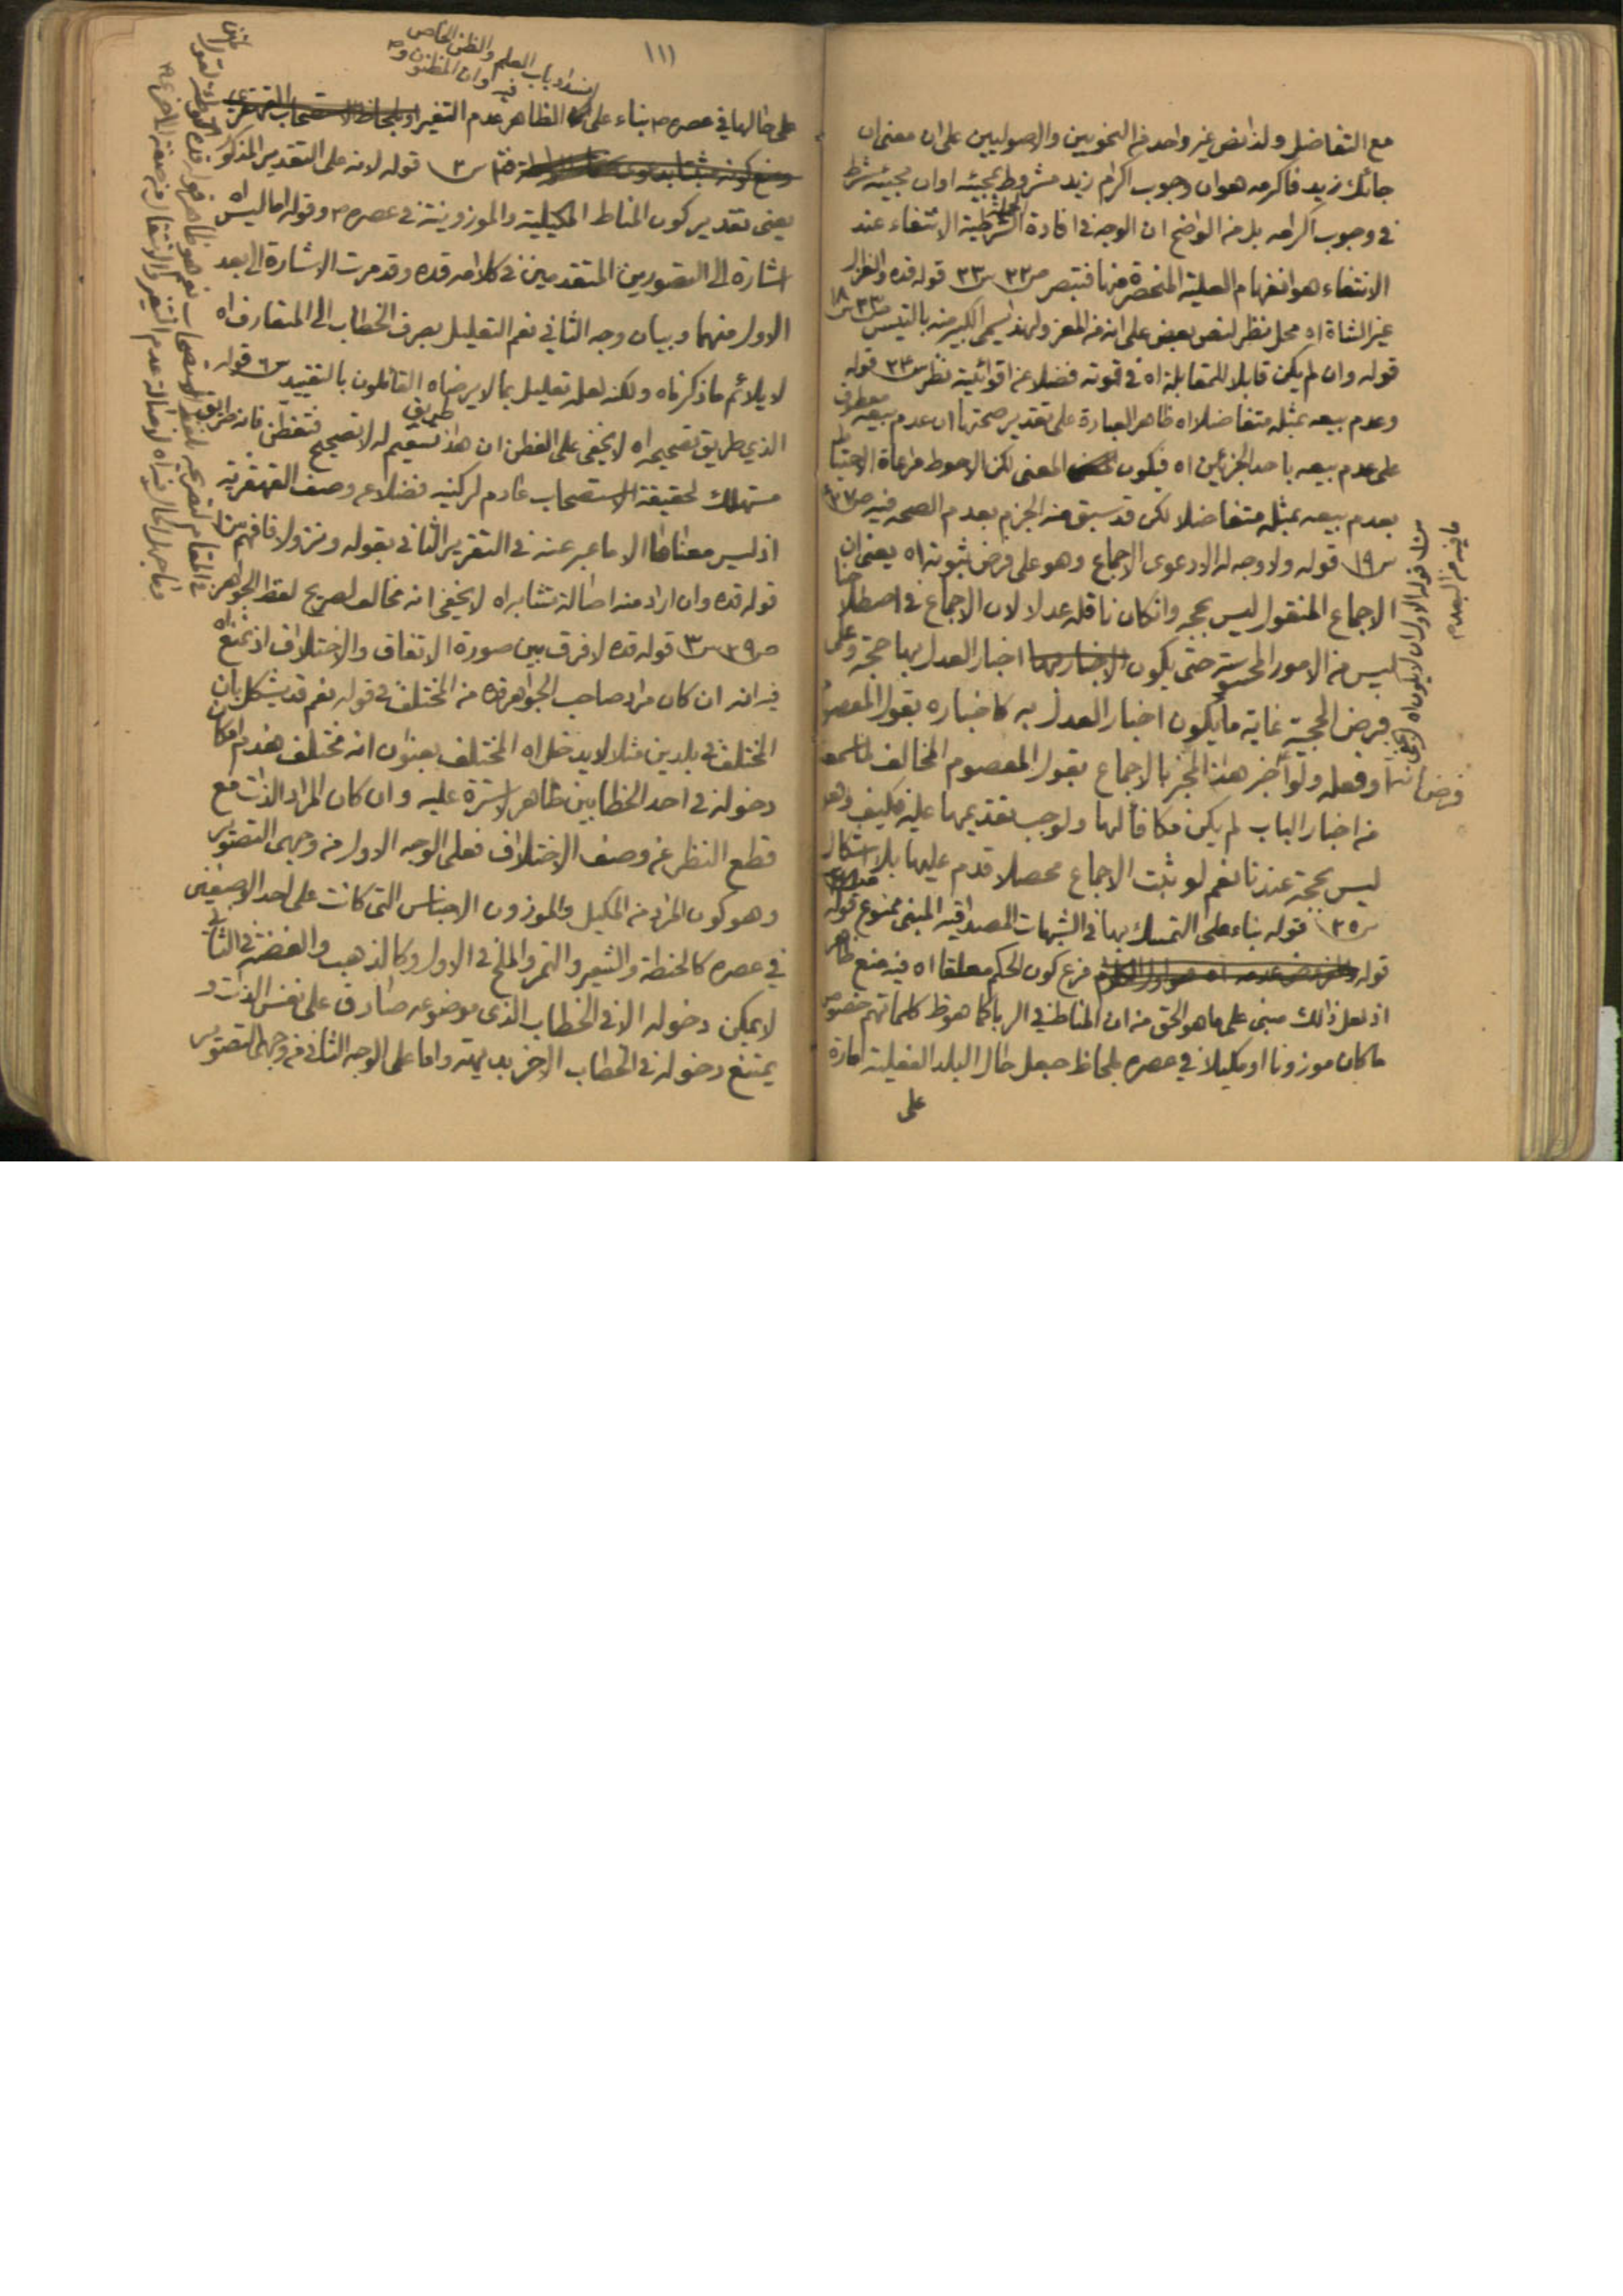 مع التفاضل ولذا نص غير واحد من النحويين والاصوليين على ان معنى ان
جائك زيد فاكرمه هو ان وجوب اكرام زيد مشروط بمجيئه او ان مجيئه شرط
في وجوب اكرامه بل من الواضح ان الوجه في افادة الجملة الشرطية الانتفاء عند
الانتفاء هو انفهام العلية المنحصرة منها فتبصر ص٣٢ س٢٣ قوله قده والغزال
غير الشاة اه محل نظر لنص بعض على انه من المعز ولهذا يسمى الكبير منه بالتيس ص٣٣ س١٨
قوله وان لم يكن قابلا للمقابلة اه في قوته فضلا عن اقوائيته نظر س٢٤ قوله
وعدم بيعه بمثله متفاضلا اه ظاهر العبارة على تقدير صحتها ان عدم بيعه معطوف
على عدم بيعه باحد الجزئين اه فيكون المعنى لكن الاحوط مراعاة الاحتياط
بعدم بيعه بمثله متفاضلا لكن قد سبق منه الجزم بعدم الصحه فيه ص٣٧
س١٩ قوله ولا وجه له الا دعوى الاجماع وهو على فرض ثبوته اه يعنى ان
الاجماع المنقول ليس بحجه وان كان ناقله عدلا لان الاجماع في اصطلاحنا
ليس من الامور الحسية حتى يكون اخبار العدل بها حجة وعلى
فرض الحجية غاية ما يكون اخبار العدل به كاخباره بقول المعصوم
او فعله ولو اخبر هذا المخبر بالاجماع بقول المعصوم المخالف
من اخبار الباب لم يكن مكافأ لها ولوجب تقديمها عليه فكيف وهو
ليس بحجة عندنا نعم لو ثبت الاجماع محصلا قدم عليها بلا اشكال
س٢٥ قوله بناء على التمسك بها في الشبهات المصداقيه المبنى ممنوع قوله
قوله فرع كون الحكم معلقا اه فيه منع ظاهر
اذ لعل ذالك مبنى على ما هو الحق من ان المناط في الربا كما هو ظ كلماتهم خصوص
ما كان موزونا او مكيلا في عصره بلحاظ جعل حال البلد الفعلية امارة
على
١١١
انسداد باب العلم والظن الخاص
فيه وان المظنون
على حالها في عصره ص بناء على الظاهر عدم التغير
س٢ قوله لانه على التقدير المذكور اه
يعنى تقدير كون المناط المكيلية والموزونية في عصره ص وقوله اما ليس اه
اشارة الى التصويرين المتقدمين في كلامه قده وقد مرت الاشارة الى بعد
الاول منهما وبيان وجه الثاني نعم التعليل بصرف الخطاب الى المتعارف اه
لا يلائم ما ذكرناه ولكنه لعله تعليل بما لا يرضاه القائلون بالتقييد س٦ قوله
الذي طريق تصحيحه اه لا يخفى على الفطن ان هذا طريق تسقيم له لا تصحيح فتفطن فانه طريق
مستهلك لحقيقة الاستصحاب عادم لركنيه فضلا عن وصف القهقرية
اذ ليس معناها الا ما عبر عنه في التقرير الثاني بقوله ونزولا فافهم
قوله قده وان اراد منه اصالة تشابه اه لا يخفى انه مخالف لصريح لفظ الجواهر
ص٣٩ س٣ قوله قده لا فرق بين صورة الاتفاق والاختلاف اذ تمنع اه
فيه انه ان كان مراد صاحب الجواهر قده من المختلف في قوله نعم قد يشكل بان
المختلف في بلدين مثلا لا يدخل اه المختلف بعنوان انه مختلف فعدم امكان
دخوله في احد الخطابين ظاهر لا سترة عليه وان كان المراد الذات مع
قطع النظر عن وصف الاختلاف فعلى الوجه الاول من وجهى التصوير
وهو كون المراد من المكيل والموزون الاجناس التى كانت على احد الوصفين
في عصره كالحنطة والشعير والتمر والملح في الاول وكالذهب والفضة في الثاني
لا يمكن دخوله الا في الخطاب الذى موضوعه صادق على نفس الذات و
يمتنع دخوله في الخطاب الاخر بديهة واما على الوجه الثاني من وجهى التصوير